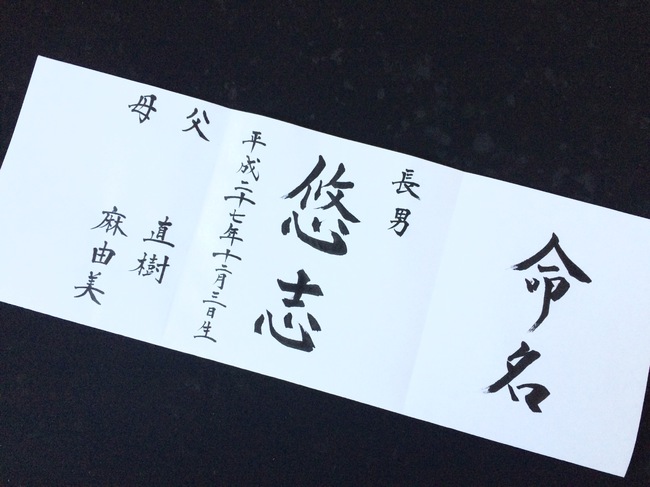 命名
長男
悠志
平成二十七年十二月三日生
父 直樹
母 麻由美